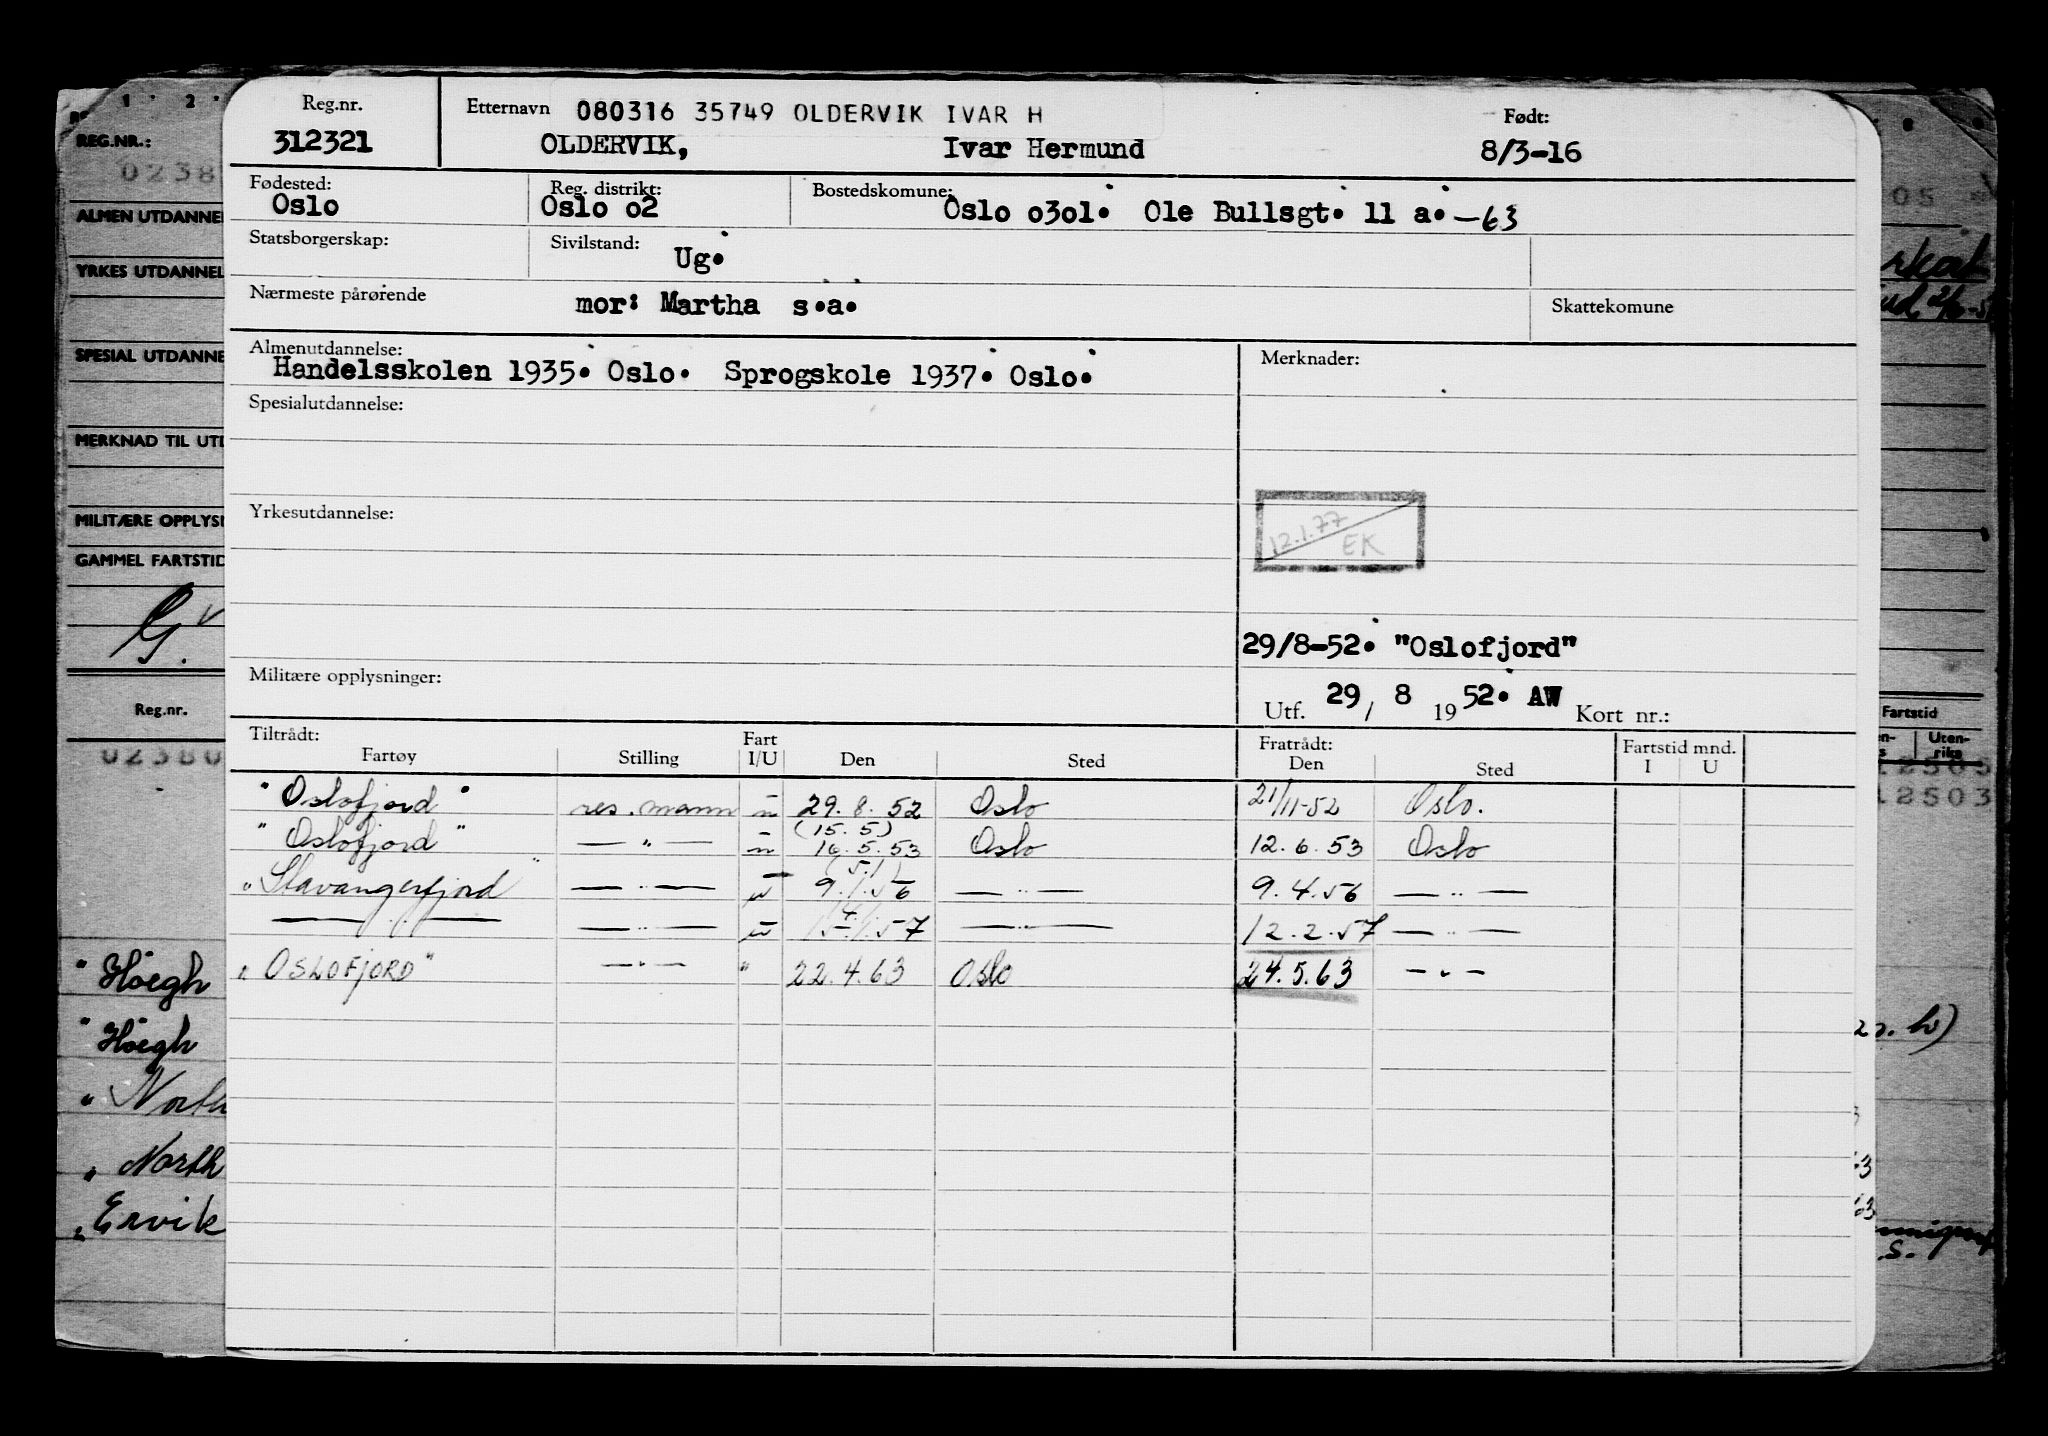 Reg.nr. Etternavn 080316 35749 OLDERVIK IVAR H Født:
312321 OLDERVIK, Ivar Hermund 8/3-16
Fødested: Reg. distrikt: Bostedskomune:
Oslo Oslo o2 Oslo o3ol. Ole Bullsgt. 11 a. -63
Statsborgerskap: Sivilstand: Ug.
Nærmeste pårørende mor: Martha s.a. Skattekomune
Almenutdannelse: Merknader:
Handelsskolen 1935. Oslo. Sprogskole 1937. Oslo.
Spesialutdannelse:
Yrkesutdannelse: 12.1.77 EK
29/8-52. "Oslofjord"
Militære opplysninger:
Utf. 29 / 8 19 52. AW Kort nr.:
Tiltrådt: Fart Fratrådt: Fartstid mnd.
Fartøy Stilling I/U Den Sted Den Sted I U
"Oslofjord" res. mann u 29. 8. 52 Oslo 21/11-52 Oslo.
(15. 5)
"Oslofjord" — " — u 16. 5. 53 Oslo 12. 6. 53 Oslo
(5.1)
"Stavangerfjord" — " — u 9. 1. 56 — " — 9. 4. 56 — " —
— " — — " — u 15. 1. 57 — " — 12. 2. 57 — " —
"OSLOFJORD" — " — " 22. 4. 63 Oslo 24. 5. 63 — " —
1 2
REG.NR.:
0238
ALMEN UTDANNE
YRKES UTDANNEL
SPESIAL UTDANNE
MERKNAD TIL UTD
MILITÆRE OPPLYS
GAMMEL FARTSTID
Reg.nr.
02380
"Höegh
"Höegh
"North
"North
"Ervik
05
Fartstid
Uten-
riks
12503
12503